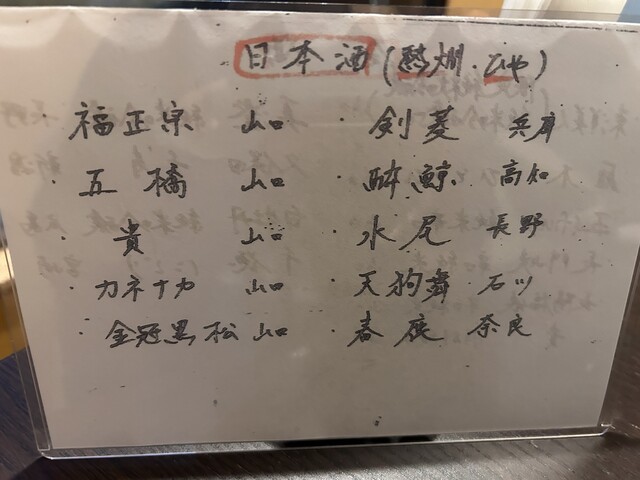 日本酒(熱燗・ひや)
・福正宗 山口 ・剣菱 兵庫
・五橋 山口 ・酔鯨 高知
・貴 山口 ・水尾 長野
・カネナカ 山口 ・天狗舞 石川
・金冠黒松 山口 ・春鹿 奈良